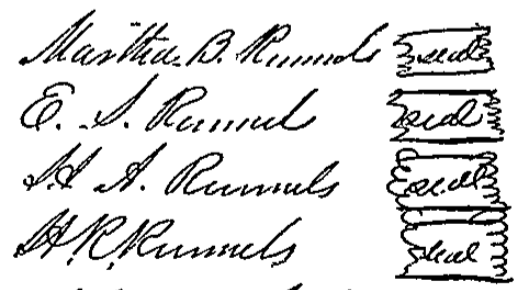 Martha B. Runnels seal
E. S. Runnels seal
H. A. Runnels seal
H. R. Runnels seal